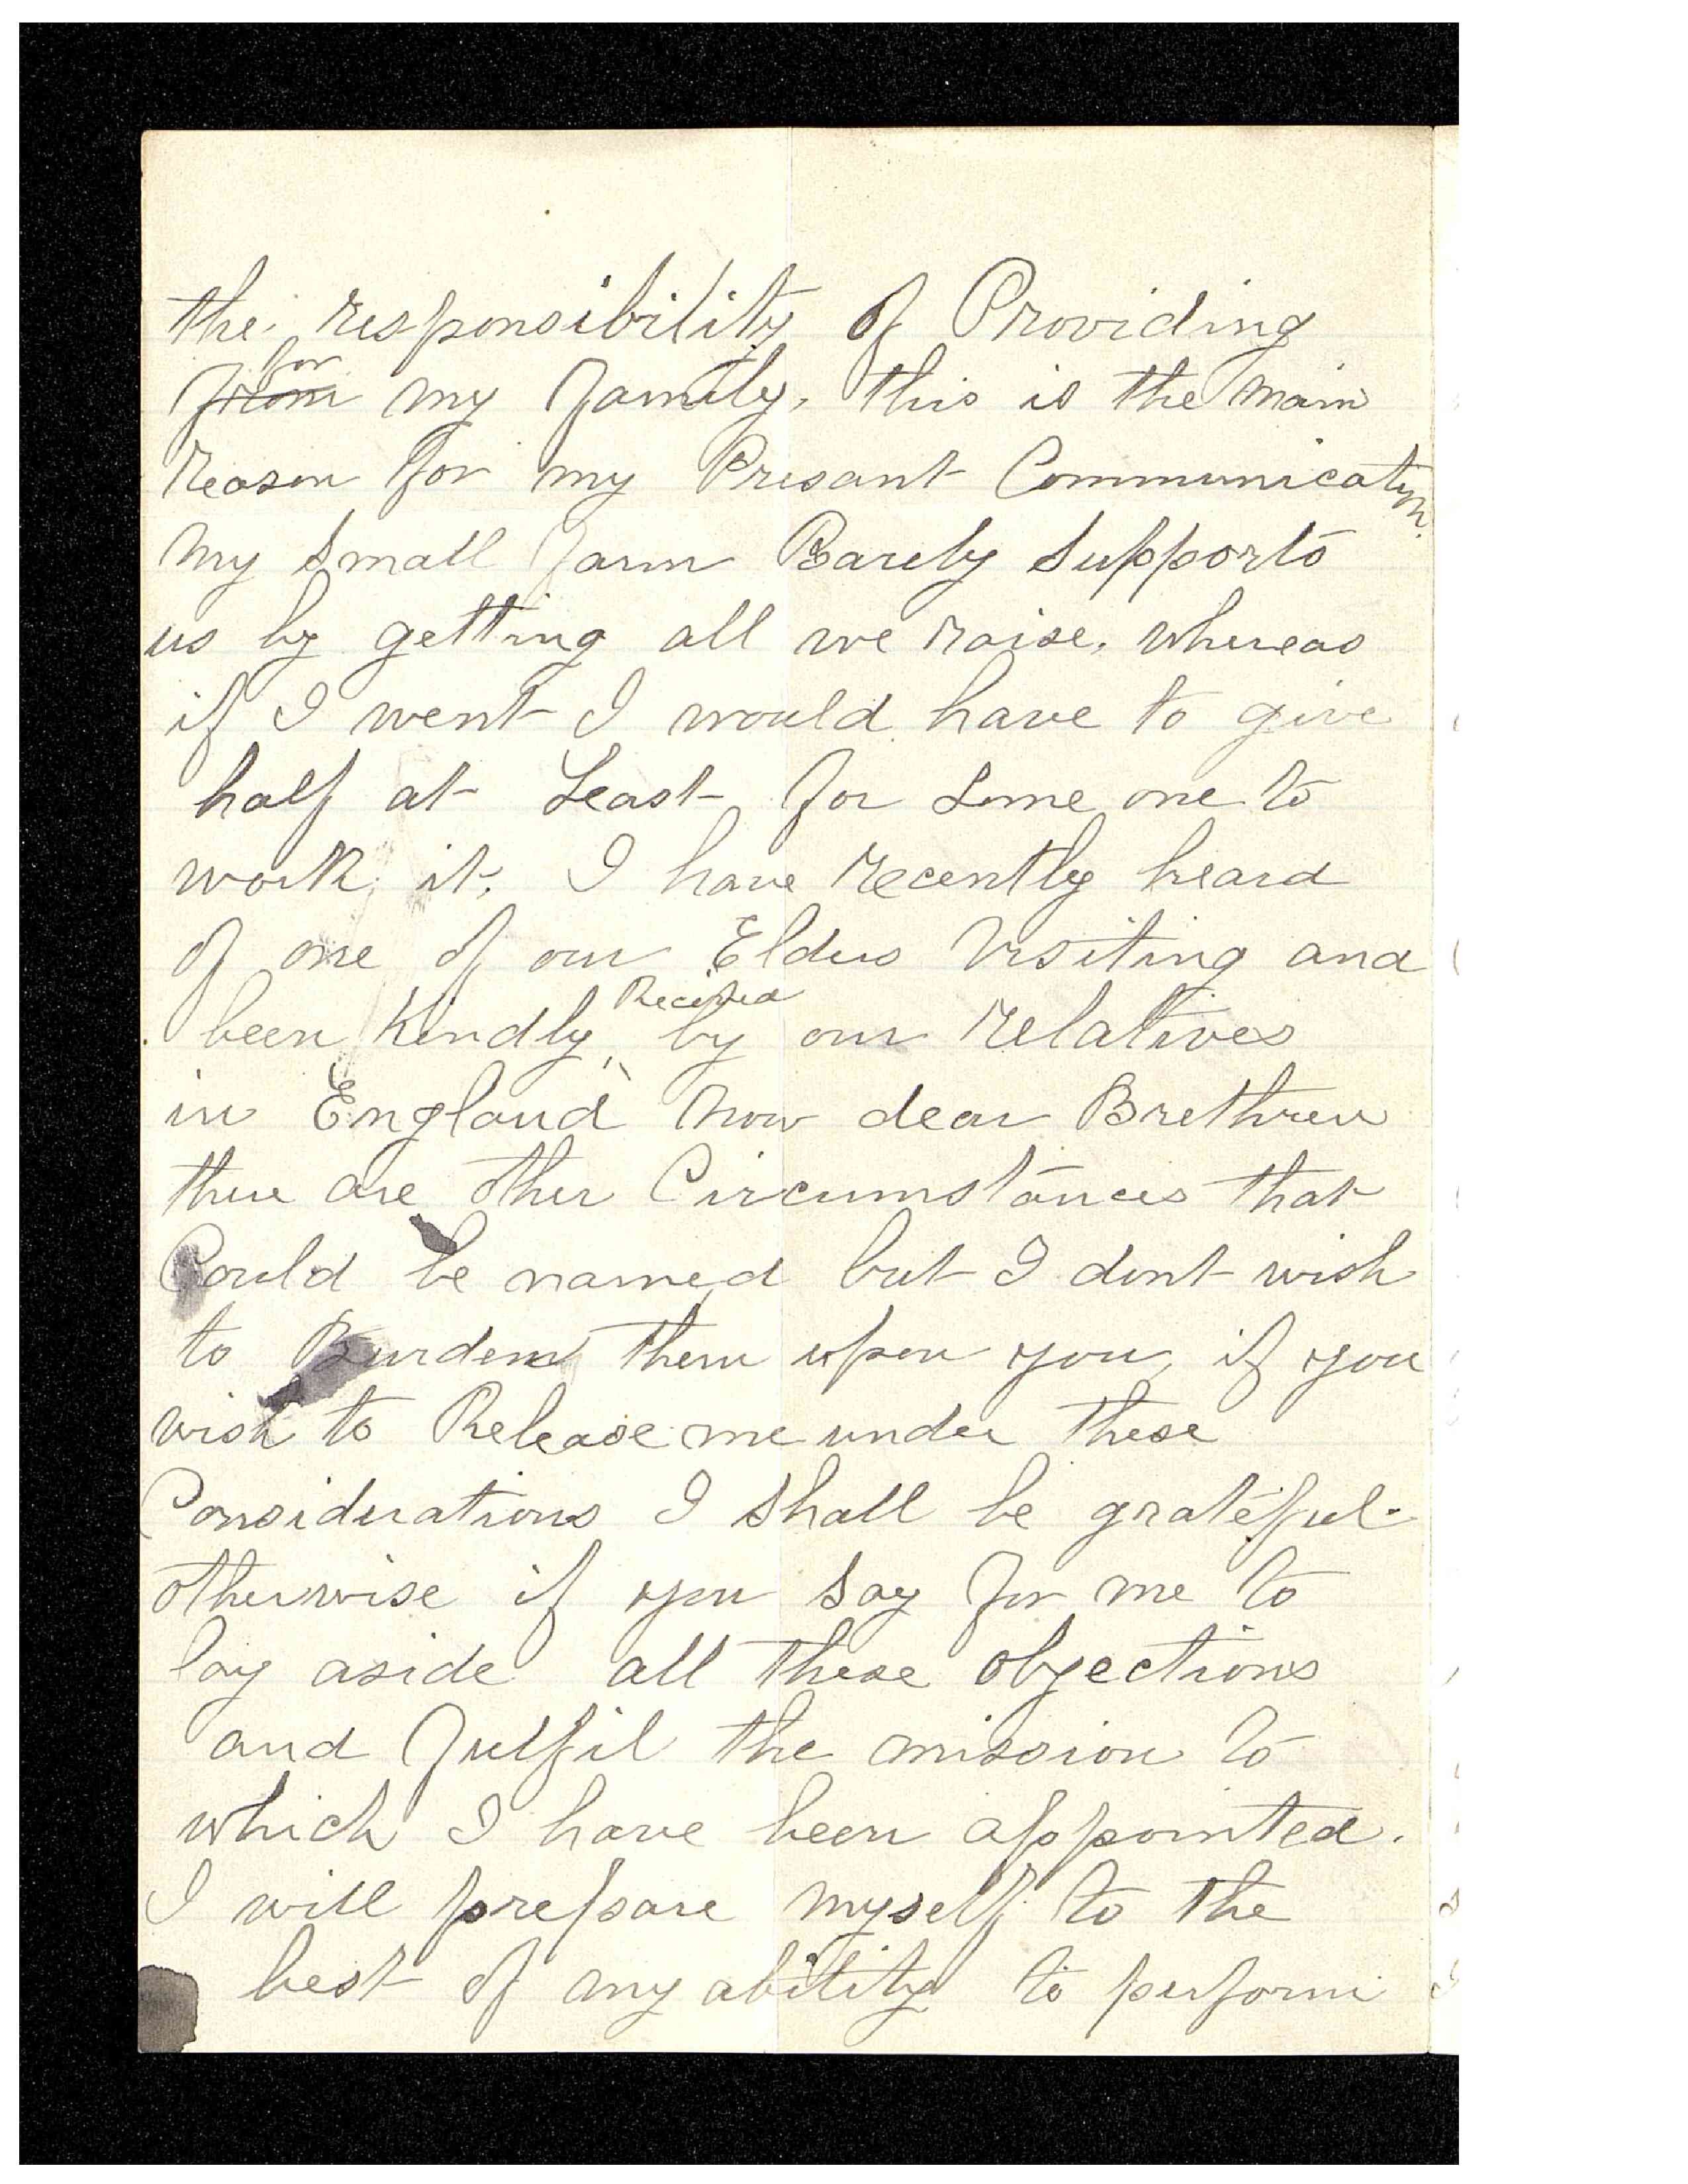 the responsibility of Providing
for
from my family, this is the main
reason for my Presant Communication.
My small farm Barely supports
us by getting all we raise, whereas
if I went I would have to give
half at Least for some one to
work it. I have recently heard
of one of our Elders Visiting and
Received
been kindly by our relatives
in England Now dear Brethren
there are other Circumstances that
Could be named but I dont wish
to Burden them upon you, if you
wish to Release me under these
Considerations I shall be grateful.
otherwise if you say for me to
lay aside all these objections
and fulfil the mission to
which I have been appointed.
I will prepare myself to the
best of my ability to perform